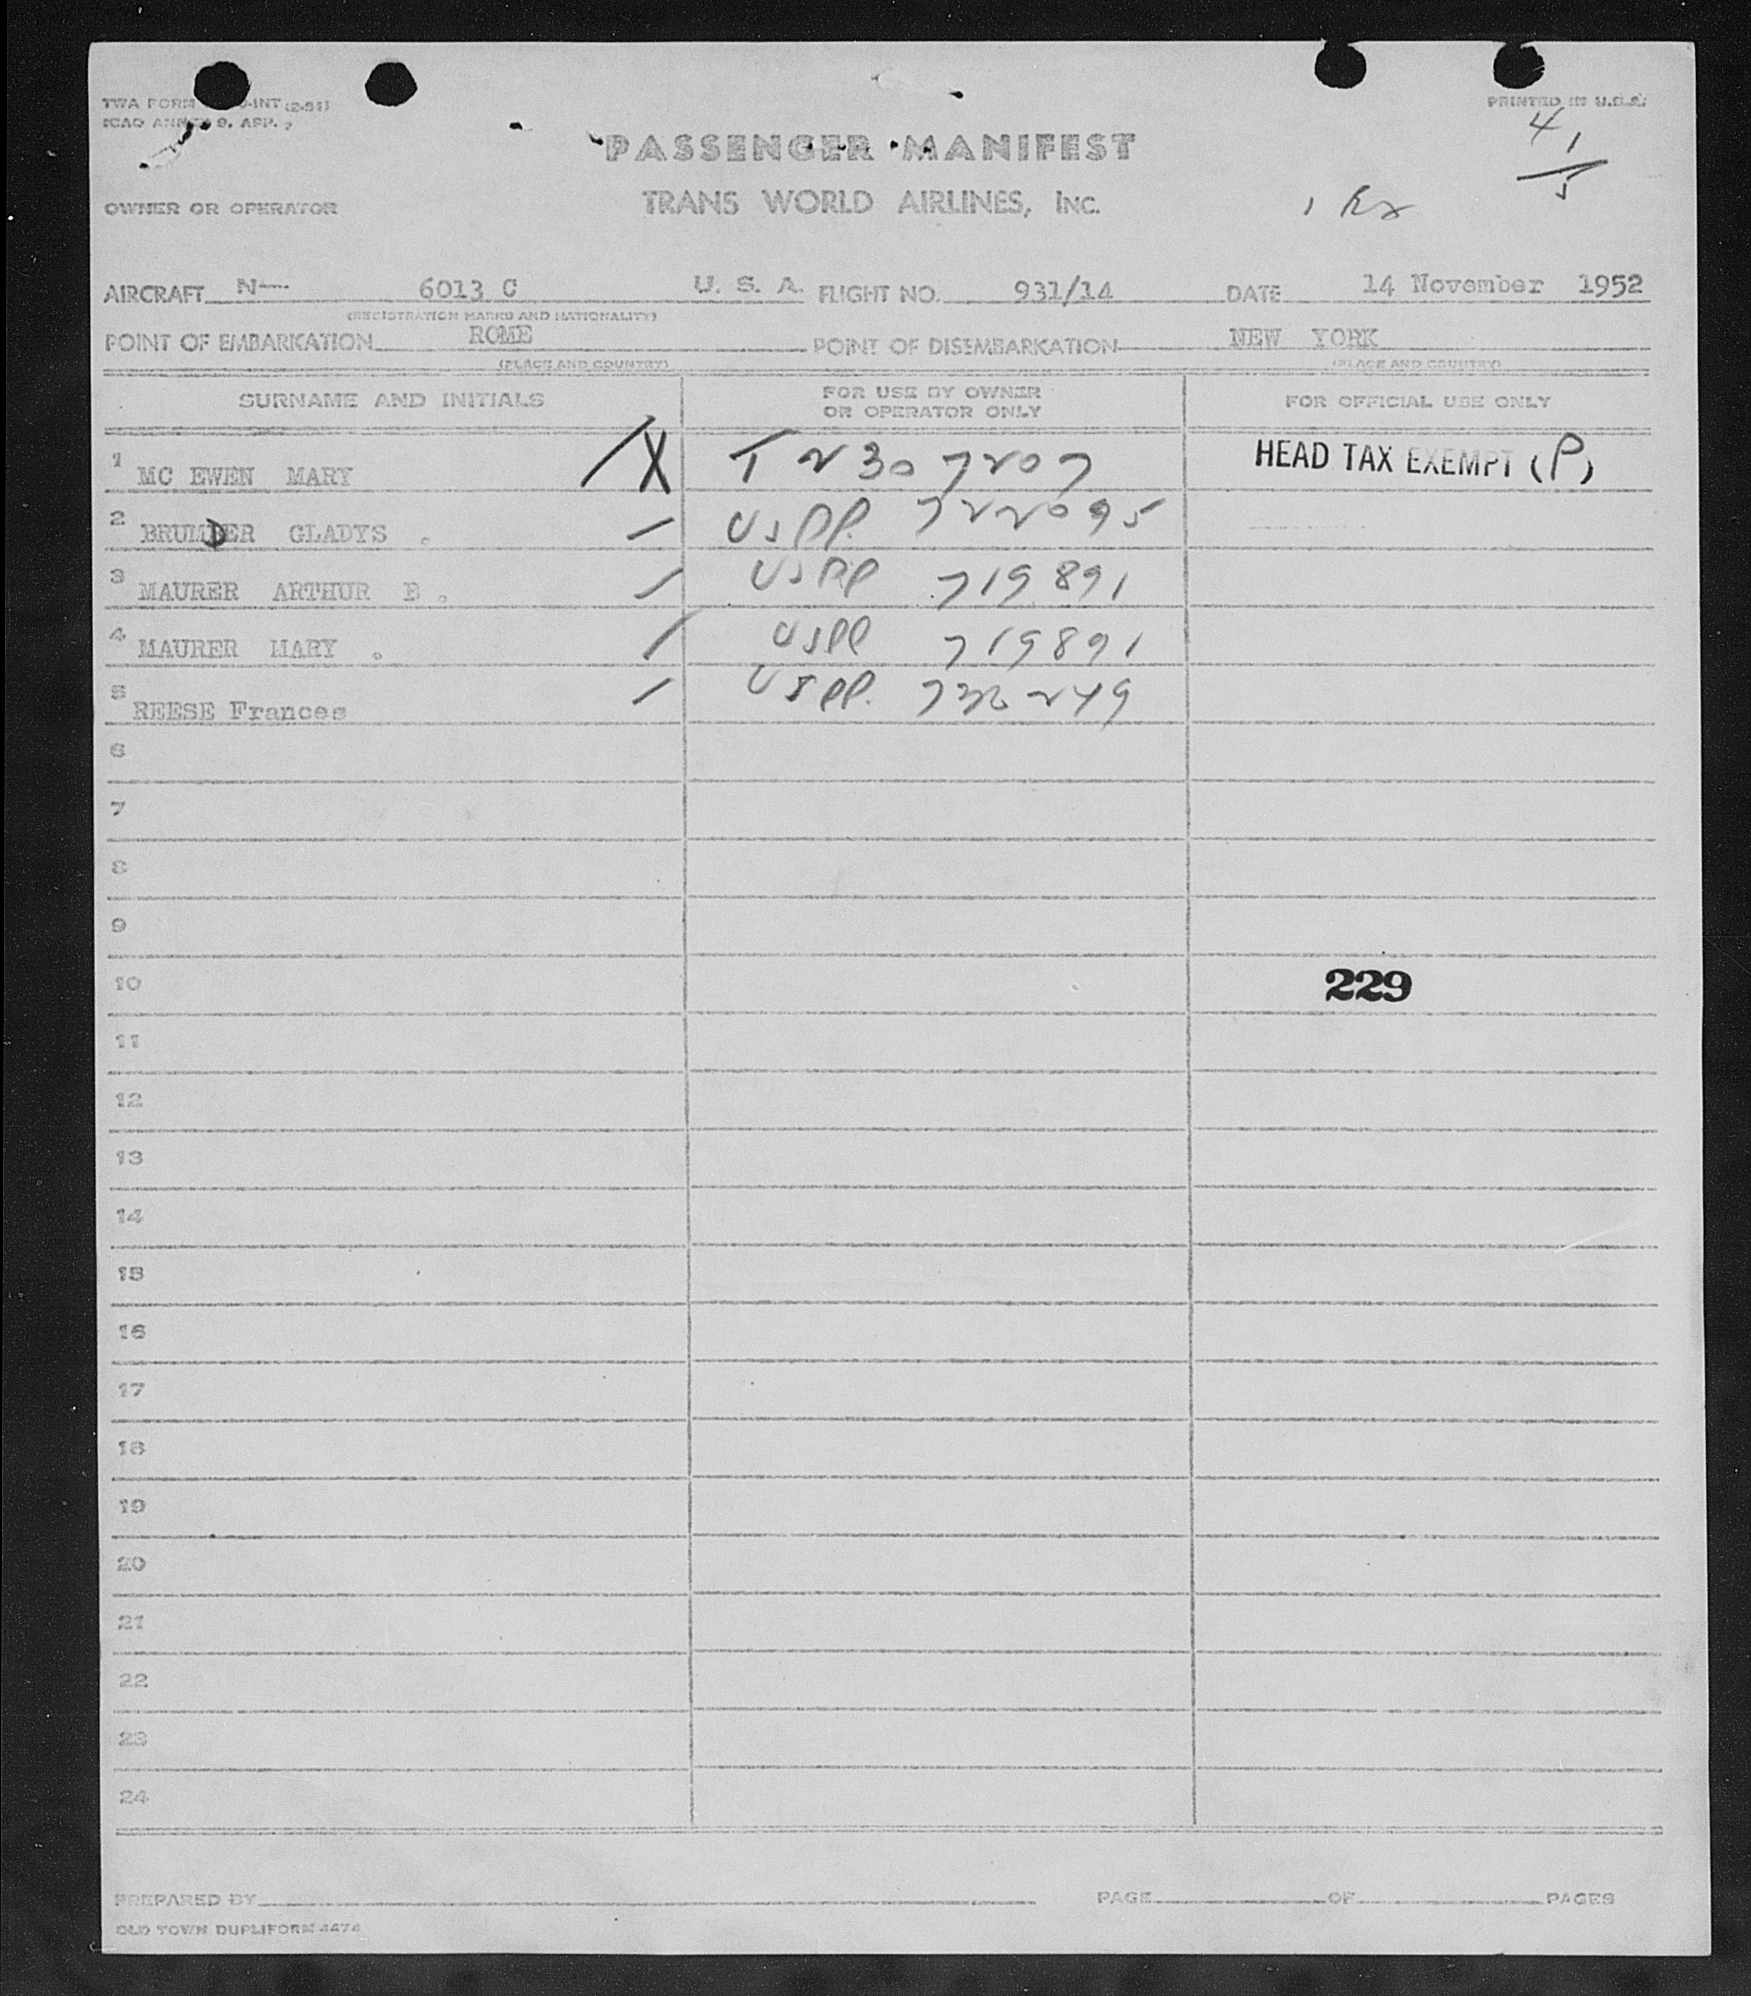 TWA FORM -INT (2-51)
PRINTED IN U.S.A.
ICAO ANNEX 9. APP.
4
1
5
PASSENGER MANIFEST
OWNER OR OPERATOR
TRANS WORLD AIRLINES, INC.
1
AIRCRAFT N— 6013 C U. S. A. FLIGHT NO. 931/14 DATE 14 November 1952
(REGISTRATION MARKS AND NATIONALITY)
POINT OF EMBARKATION ROME POINT OF DISEMBARKATION NEW YORK
(PLACE AND COUNTRY) (PLACE AND COUNTRY)
SURNAME AND INITIALS FOR USE BY OWNER OR OPERATOR ONLY FOR OFFICIAL USE ONLY
1 MC EWEN MARY / X T 2307207 HEAD TAX EXEMPT (P)
2 BRUMDER GLADYS . / USPP. 722095
3 MAURER ARTHUR B . / USPP 719891
4 MAURER MARY . / USPP 719891
5 REESE Frances / USPP. 249
6
7
8
9
10 229
11
12
13
14
15
16
17
18
19
20
21
22
23
24
PREPARED BY PAGE OF PAGES
OLD TOWN DUPLIFORM 4474